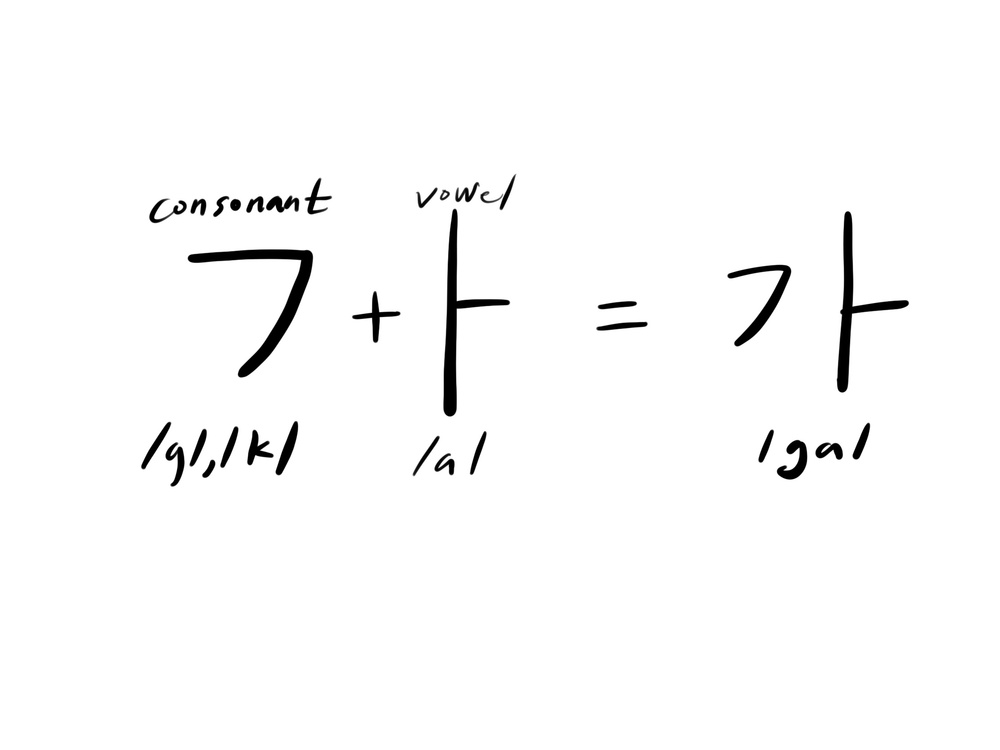 consonant vowel
ㄱ + ㅏ = 가
/g/,/k/ /a/ /ga/